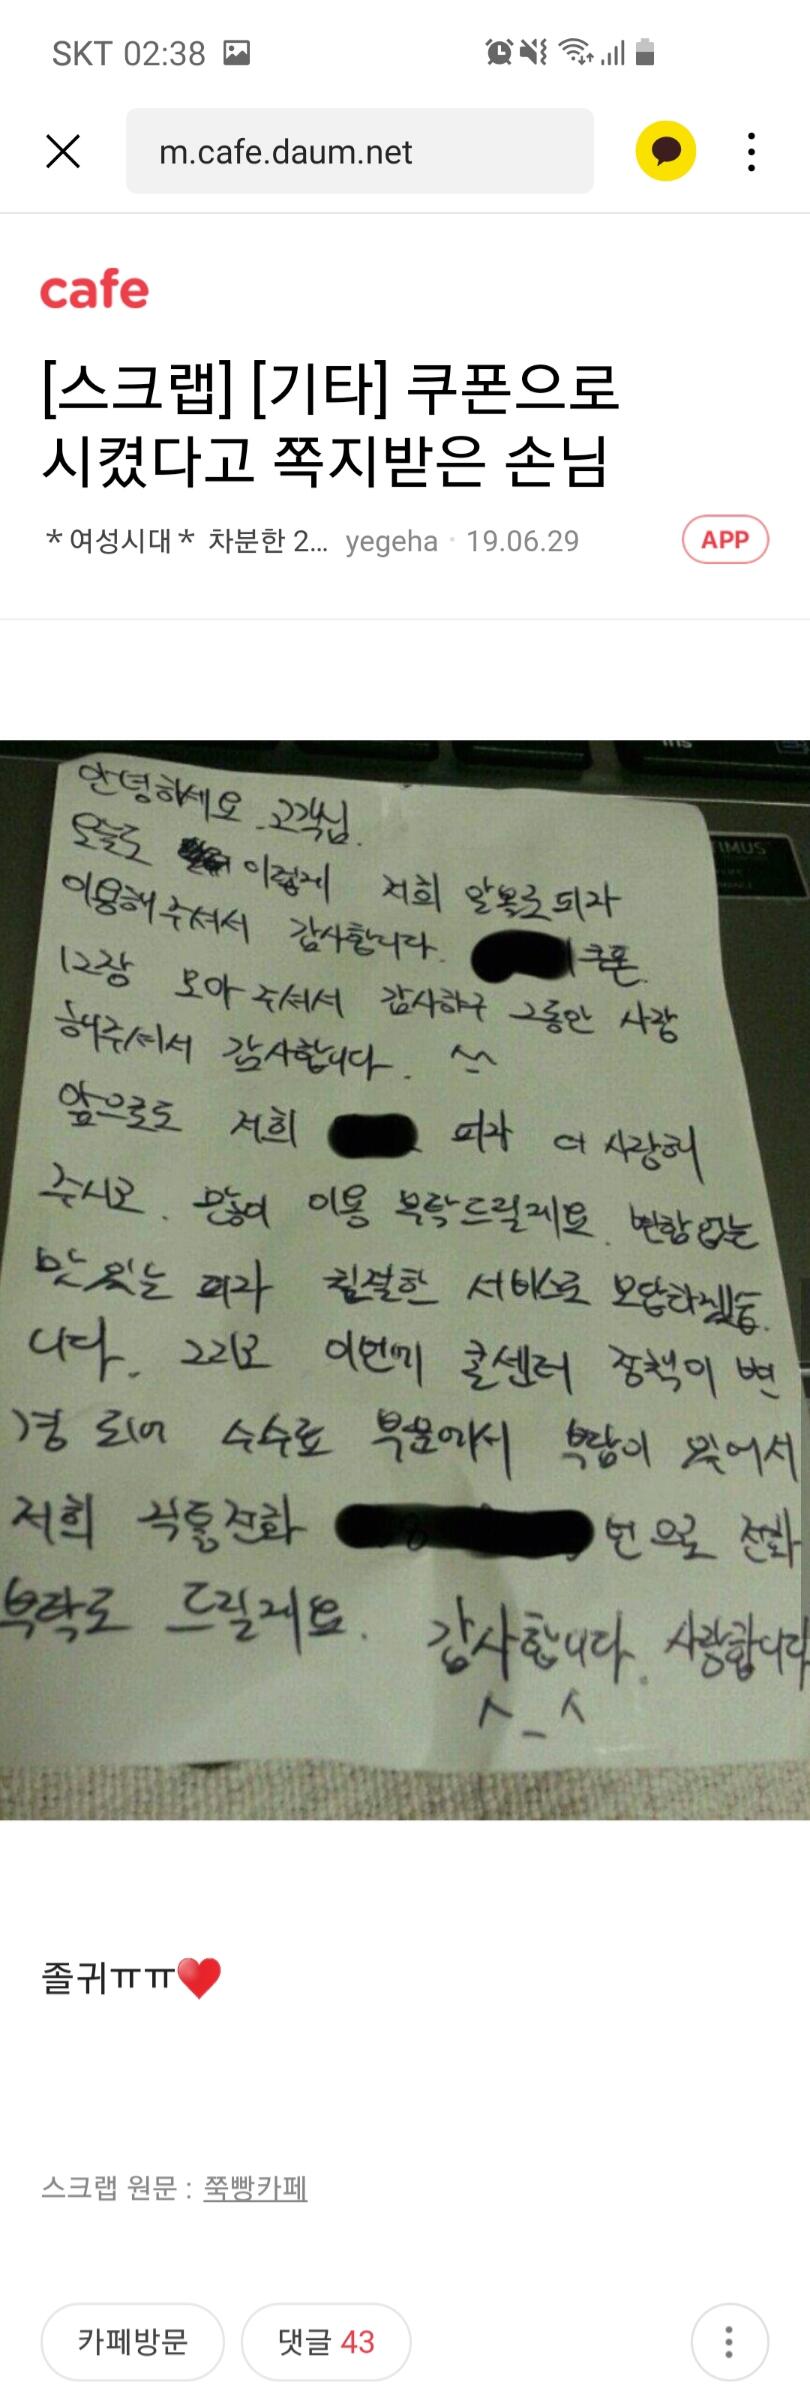 SKT 02:38
m.cafe.daum.net
cafe
[스크랩] [기타] 쿠폰으로
시켰다고 쪽지받은 손님
*여성시대* 차분한 2... yegeha · 19.06.29
APP
안녕하세요. 고객님.
오늘도 이렇게 저희 알볼로피자
이용해주셔서 감사합니다. 쿠폰
12장 모아주셔서 감사하구 그동안 사랑
해주셔서 감사합니다. ^^
앞으로도 저희 피자 더 사랑해
주시고. 많이 이용 부탁드릴게요. 변함없는
맛있는 피자 친절한 서비스로 보답하겠습
니다. 그리고 이번에 콜센터 정책이 변
경 되어 수수료 부분에서 부담이 있어서
저희 직통전화 번으로 전화
부탁도 드릴게요. 감사합니다. 사랑합니다
^_^
졸귀ㅠㅠ♥
스크랩 원문 : 쭉빵카페
카페방문
댓글 43